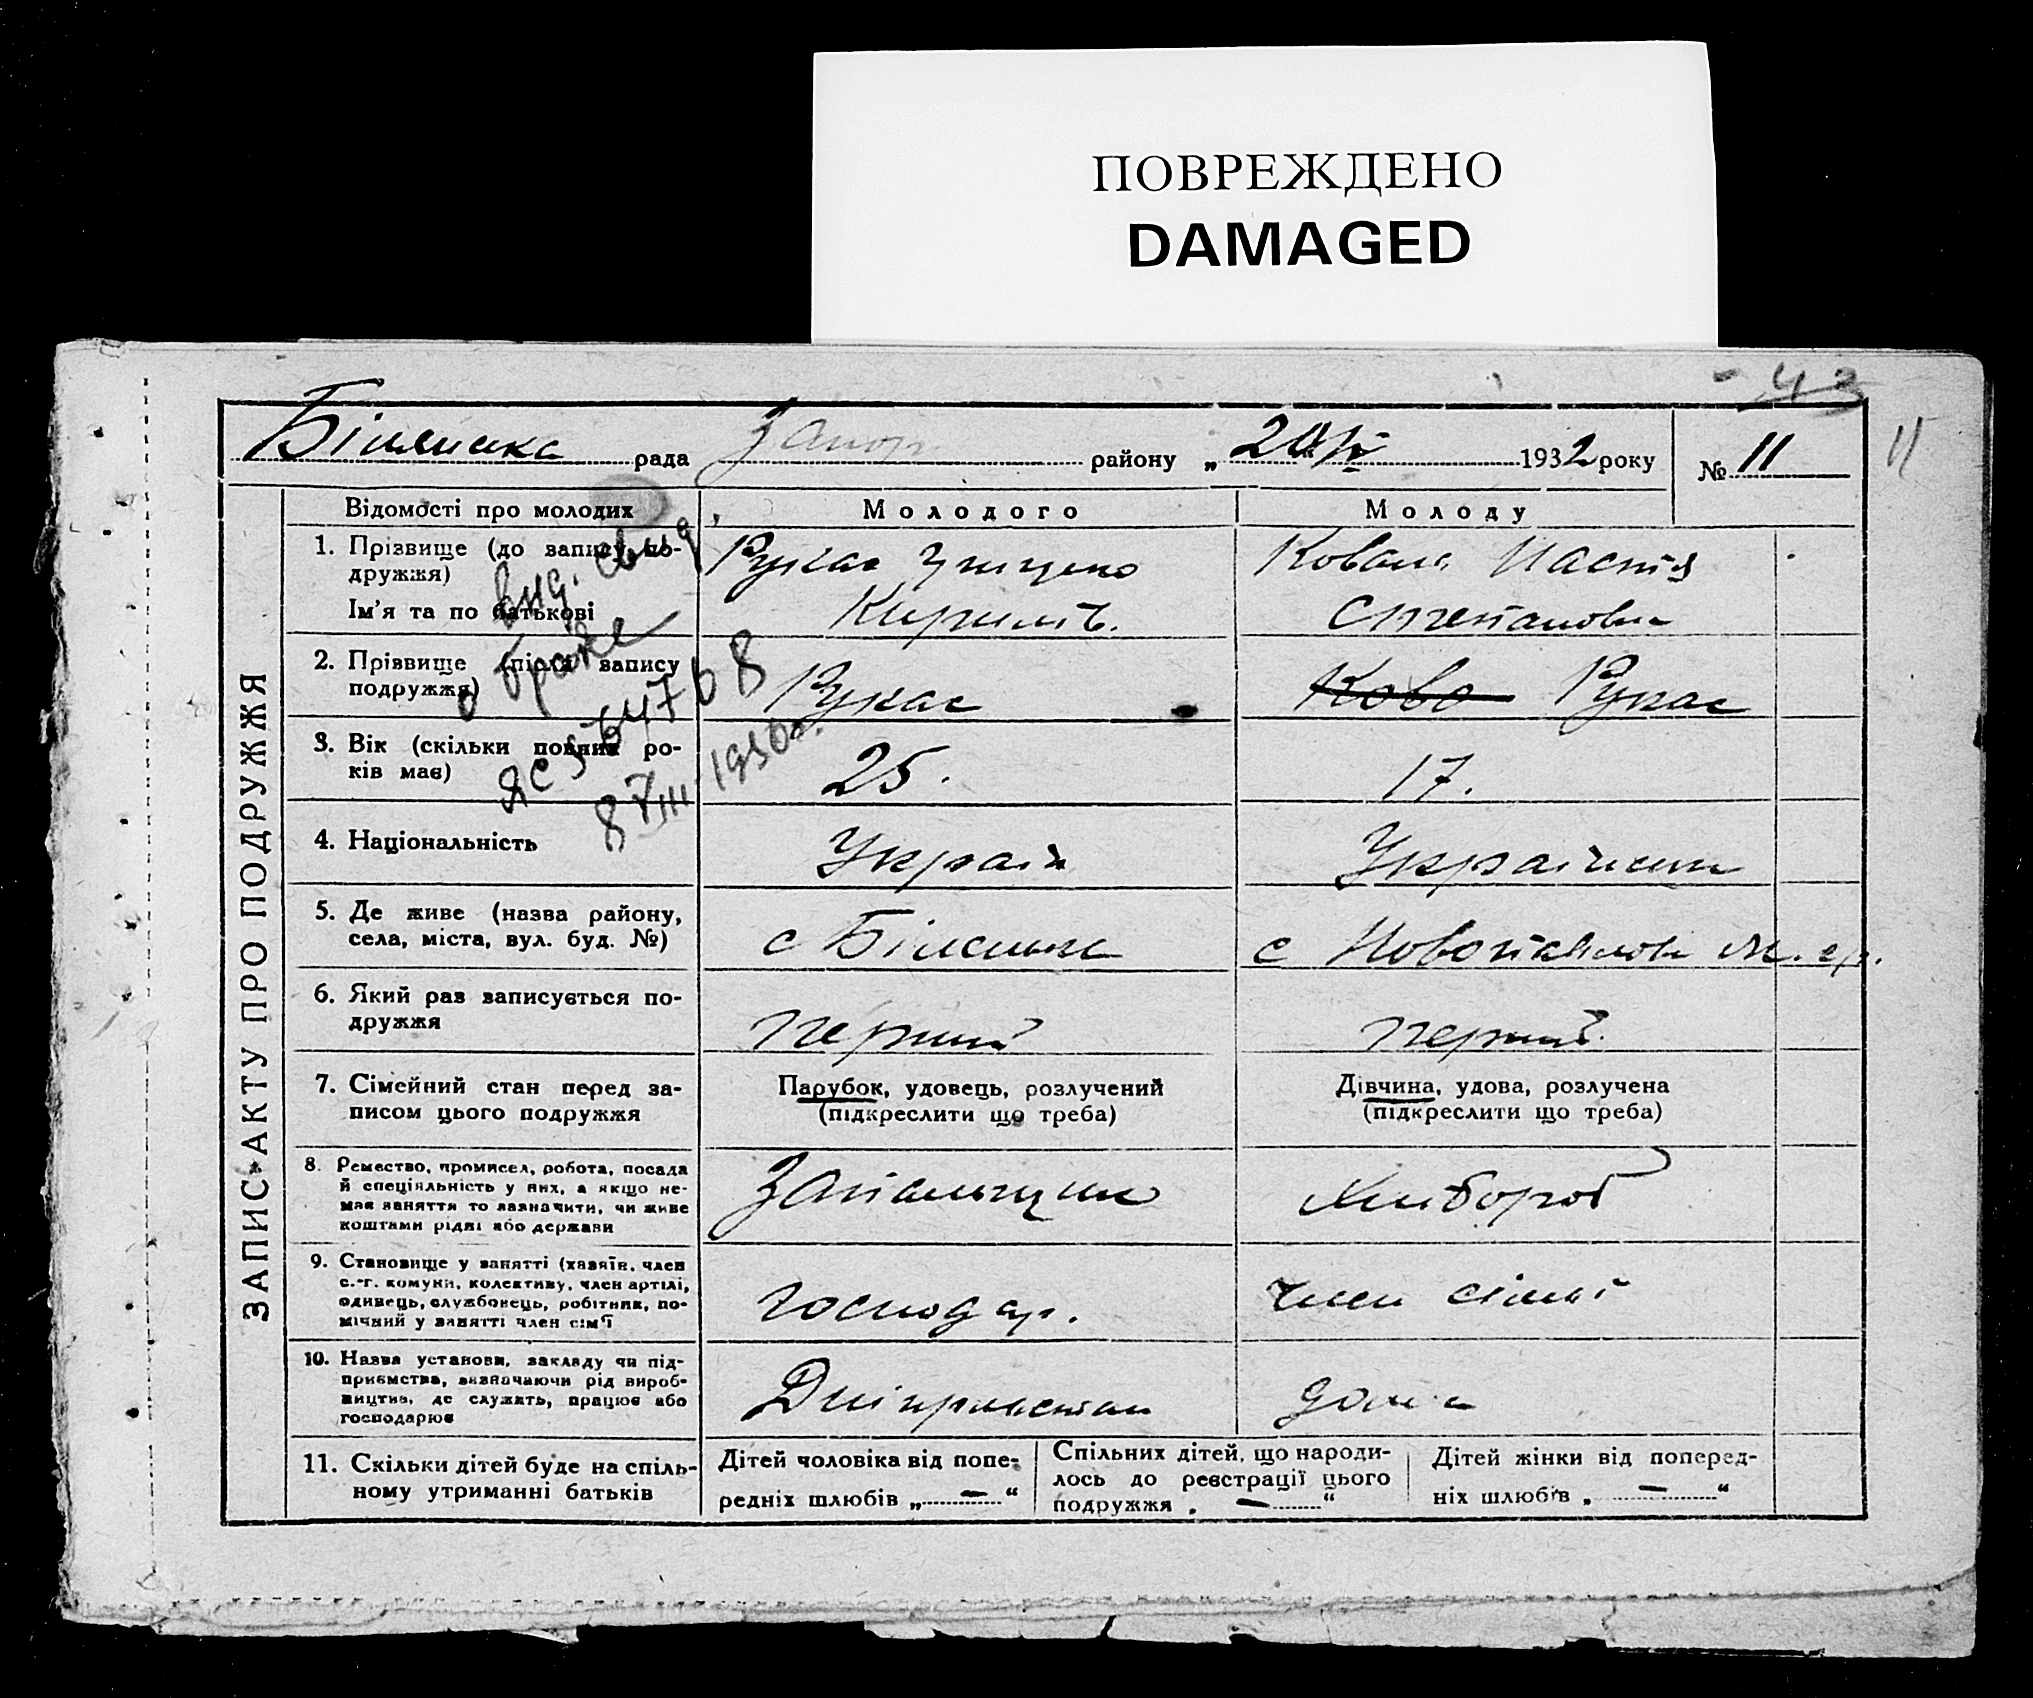 ПОВРЕЖДЕНО
DAMAGED
43
рада Запор району „20 1932 року № 11
11
ЗАПИС АКТУ ПРО ПОДРУЖЖЯ
Відомості про молодих Молодого Молоду
1. Прізвище (до запису подружжя) Рукас Коваль Настя
Ім'я та по батькові Степановна
вид. свид
о браке
ЯС 564768
8/VIII 1950г.
2. Прізвище (після запису подружжя) Рукас Ково Рукас
3. Вік (скільки повних років має) 25. 17.
4. Національність Україн Українка
5. Де живе (назва району, села, міста, вул. буд. №) с Біленьке с
6. Який раз записується подружжя перший перший
7. Сімейний стан перед записом цього подружжя
Парубок, удовець, розлучений
(підкреслити що треба)
Дівчина, удова, розлучена
(підкреслити що треба)
8. Ремество, промисел, робота, посада й спеціяльність у них, а якщо немає заняття то зазначити, чи живе коштами рідні або держави хлібороб
9. Становище у занятті (хазяїн, член с.-г. комуни, колективу, член артілі, одинець, службовець, робітник, помічний у занятті член сім'ї господар. член сімї
10. Назва установи, закладу чи підприємства, зазначаючи рід виробництва, де служить, працює або господарює дома
11. Скільки дітей буде на спільному утриманні батьків
Дітей чоловіка від попередніх шлюбів „ — “
Спільних дітей, що народилось до реєстрації цього подружжя „ — “
Дітей жінки від попередніх шлюбів „ — “